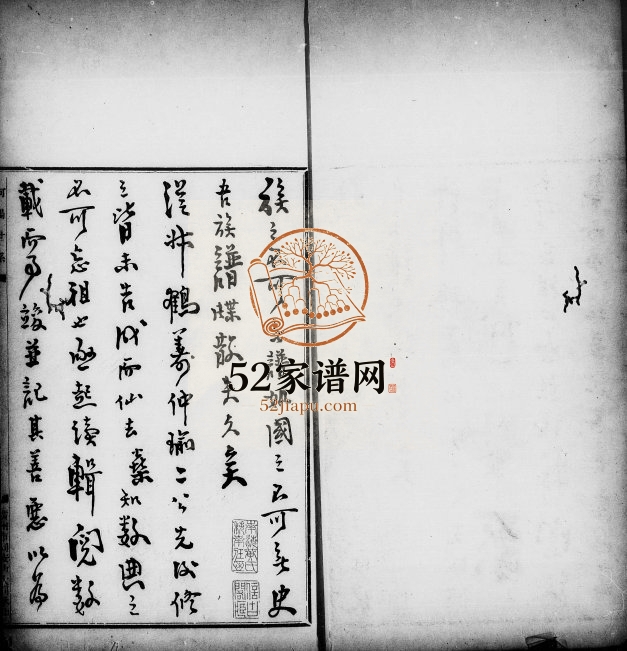 族之不可無譜猶國之不可無史
吾族譜牒散失久矣
從叔鶴壽仲瑜二公先後修
之皆未告成而仙去燊知數典之
不可忘祖也愿起續輯閱數
載而事竣並記其善惡以為
52家谱网
52jiapu.com